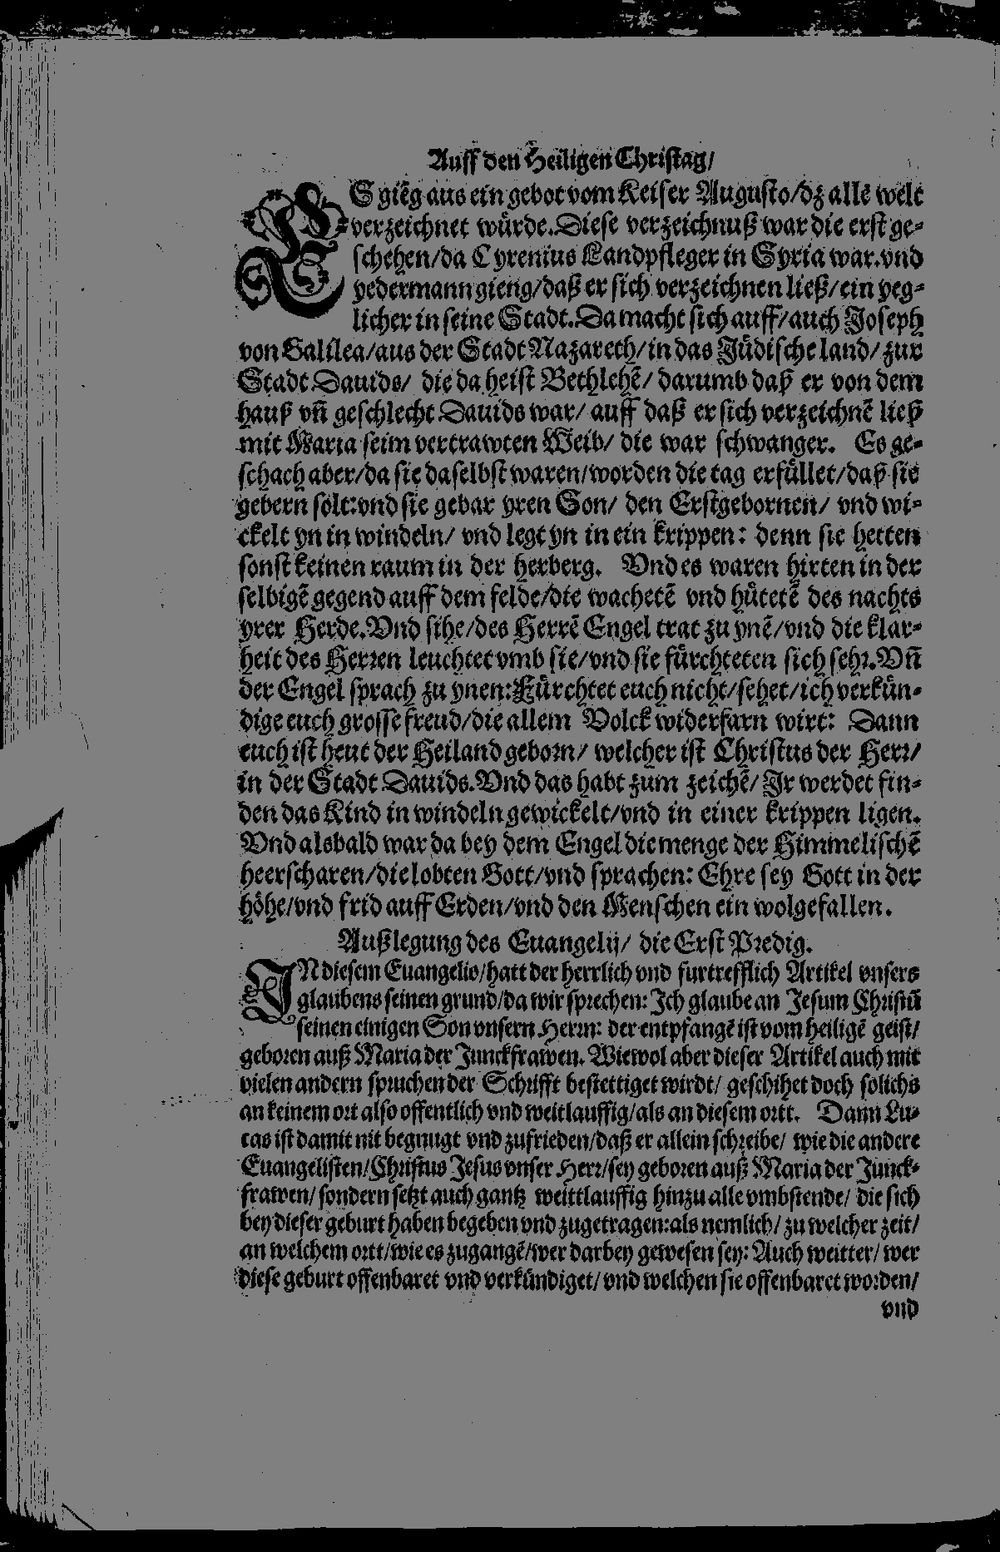 Auff den Heiligen Christag/
ES giēg aus ein gebot vom Keiser Augusto/dz alle welt
verzeichnet würde.Diese verzeichnuß war die erst ge-
schehen/da Cyrenius Landpfleger in Syria war.vnd
yedermann gieng/daß er sich verzeichnen ließ/ein yeg-
licher in seine Stadt.Da macht sich auff/auch Joseph
von Galilea/aus der Stadt Nazareth/in das Jüdische land/ zur
Stadt Dauids/ die da heist Bethlehē/ darumb daß er von dem
hauß vñ geschlecht Dauids war/ auff daß er sich verzeichnē ließ
mit Maria seim vertrawten Weib/ die war schwanger. Es ge-
schach aber/da sie daselbst waren/worden die tag erfüllet/daß sie
gebern solt:vnd sie gebar yren Son/ den Erstgebornen/ vnd wi-
ckelt yn in windeln/ vnd legt yn in ein krippen: denn sie hetten
sonst keinen raum in der herberg. Vnd es waren hirten in der
selbigē gegend auff dem felde/die wachetē vnd hütetē des nachts
yrer Herde.Vnd sihe/des Herrē Engel trat zu ynē/vnd die klar-
heit des Herren leuchtet vmb sie/vnd sie fürchteten sich sehr.Vñ
der Engel sprach zu ynen:Fürchtet euch nicht/sehet/ich verkün-
dige euch grosse freud/die allem Volck widerfarn wirt: Dann
euch ist heut der Heiland geborn/ welcher ist Christus der Herr/
in der Stadt Dauids.Vnd das habt zum zeichē/ Jr werdet fin-
den das Kind in windeln gewickelt/vnd in einer krippen ligen.
Vnd alsbald war da bey dem Engel die menge der Himmelischē
heerscharen/die lobten Gott/vnd sprachen: Ehre sey Gott in der
höhe/vnd frid auff Erden/vnd den Menschen ein wolgefallen.
Außlegung des Euangelij/ die Erst Predig.
IN diesem Euangelio/hatt der herrlich vnd furtrefflich Artikel vnsers
glaubens seinen grund/da wir sprechen: Ich glaube an Jesum Christū
seinen einigen Son vnsern Herrn: der entpfangē ist vom heiligē geist/
geboren auß Maria der Junckfrawen. Wiewol aber dieser Artikel auch mit
vielen andern spruchen der Schrifft bestettiget wirdt/ geschihet doch solichs
an keinem ort also offentlich vnd weitlauffig/als an diesem ortt. Dann Lu-
cas ist damit nit begnugt vnd zufrieden/daß er allein schreibe/ wie die andere
Euangelisten/Christus Jesus vnser Herr/sey geboren auß Maria der Junck-
frawen/ sondern setzt auch gantz weittlauffig hinzu alle vmbstende/ die sich
bey dieser geburt haben begeben vnd zugetragen:als nemlich/ zu welcher zeit/
an welchem ortt/wie es zugangē/wer darbey gewesen sey: Auch weitter/ wer
diese geburt offenbaret vnd verkündiget/ vnd welchen sie offenbaret worden/
vnd